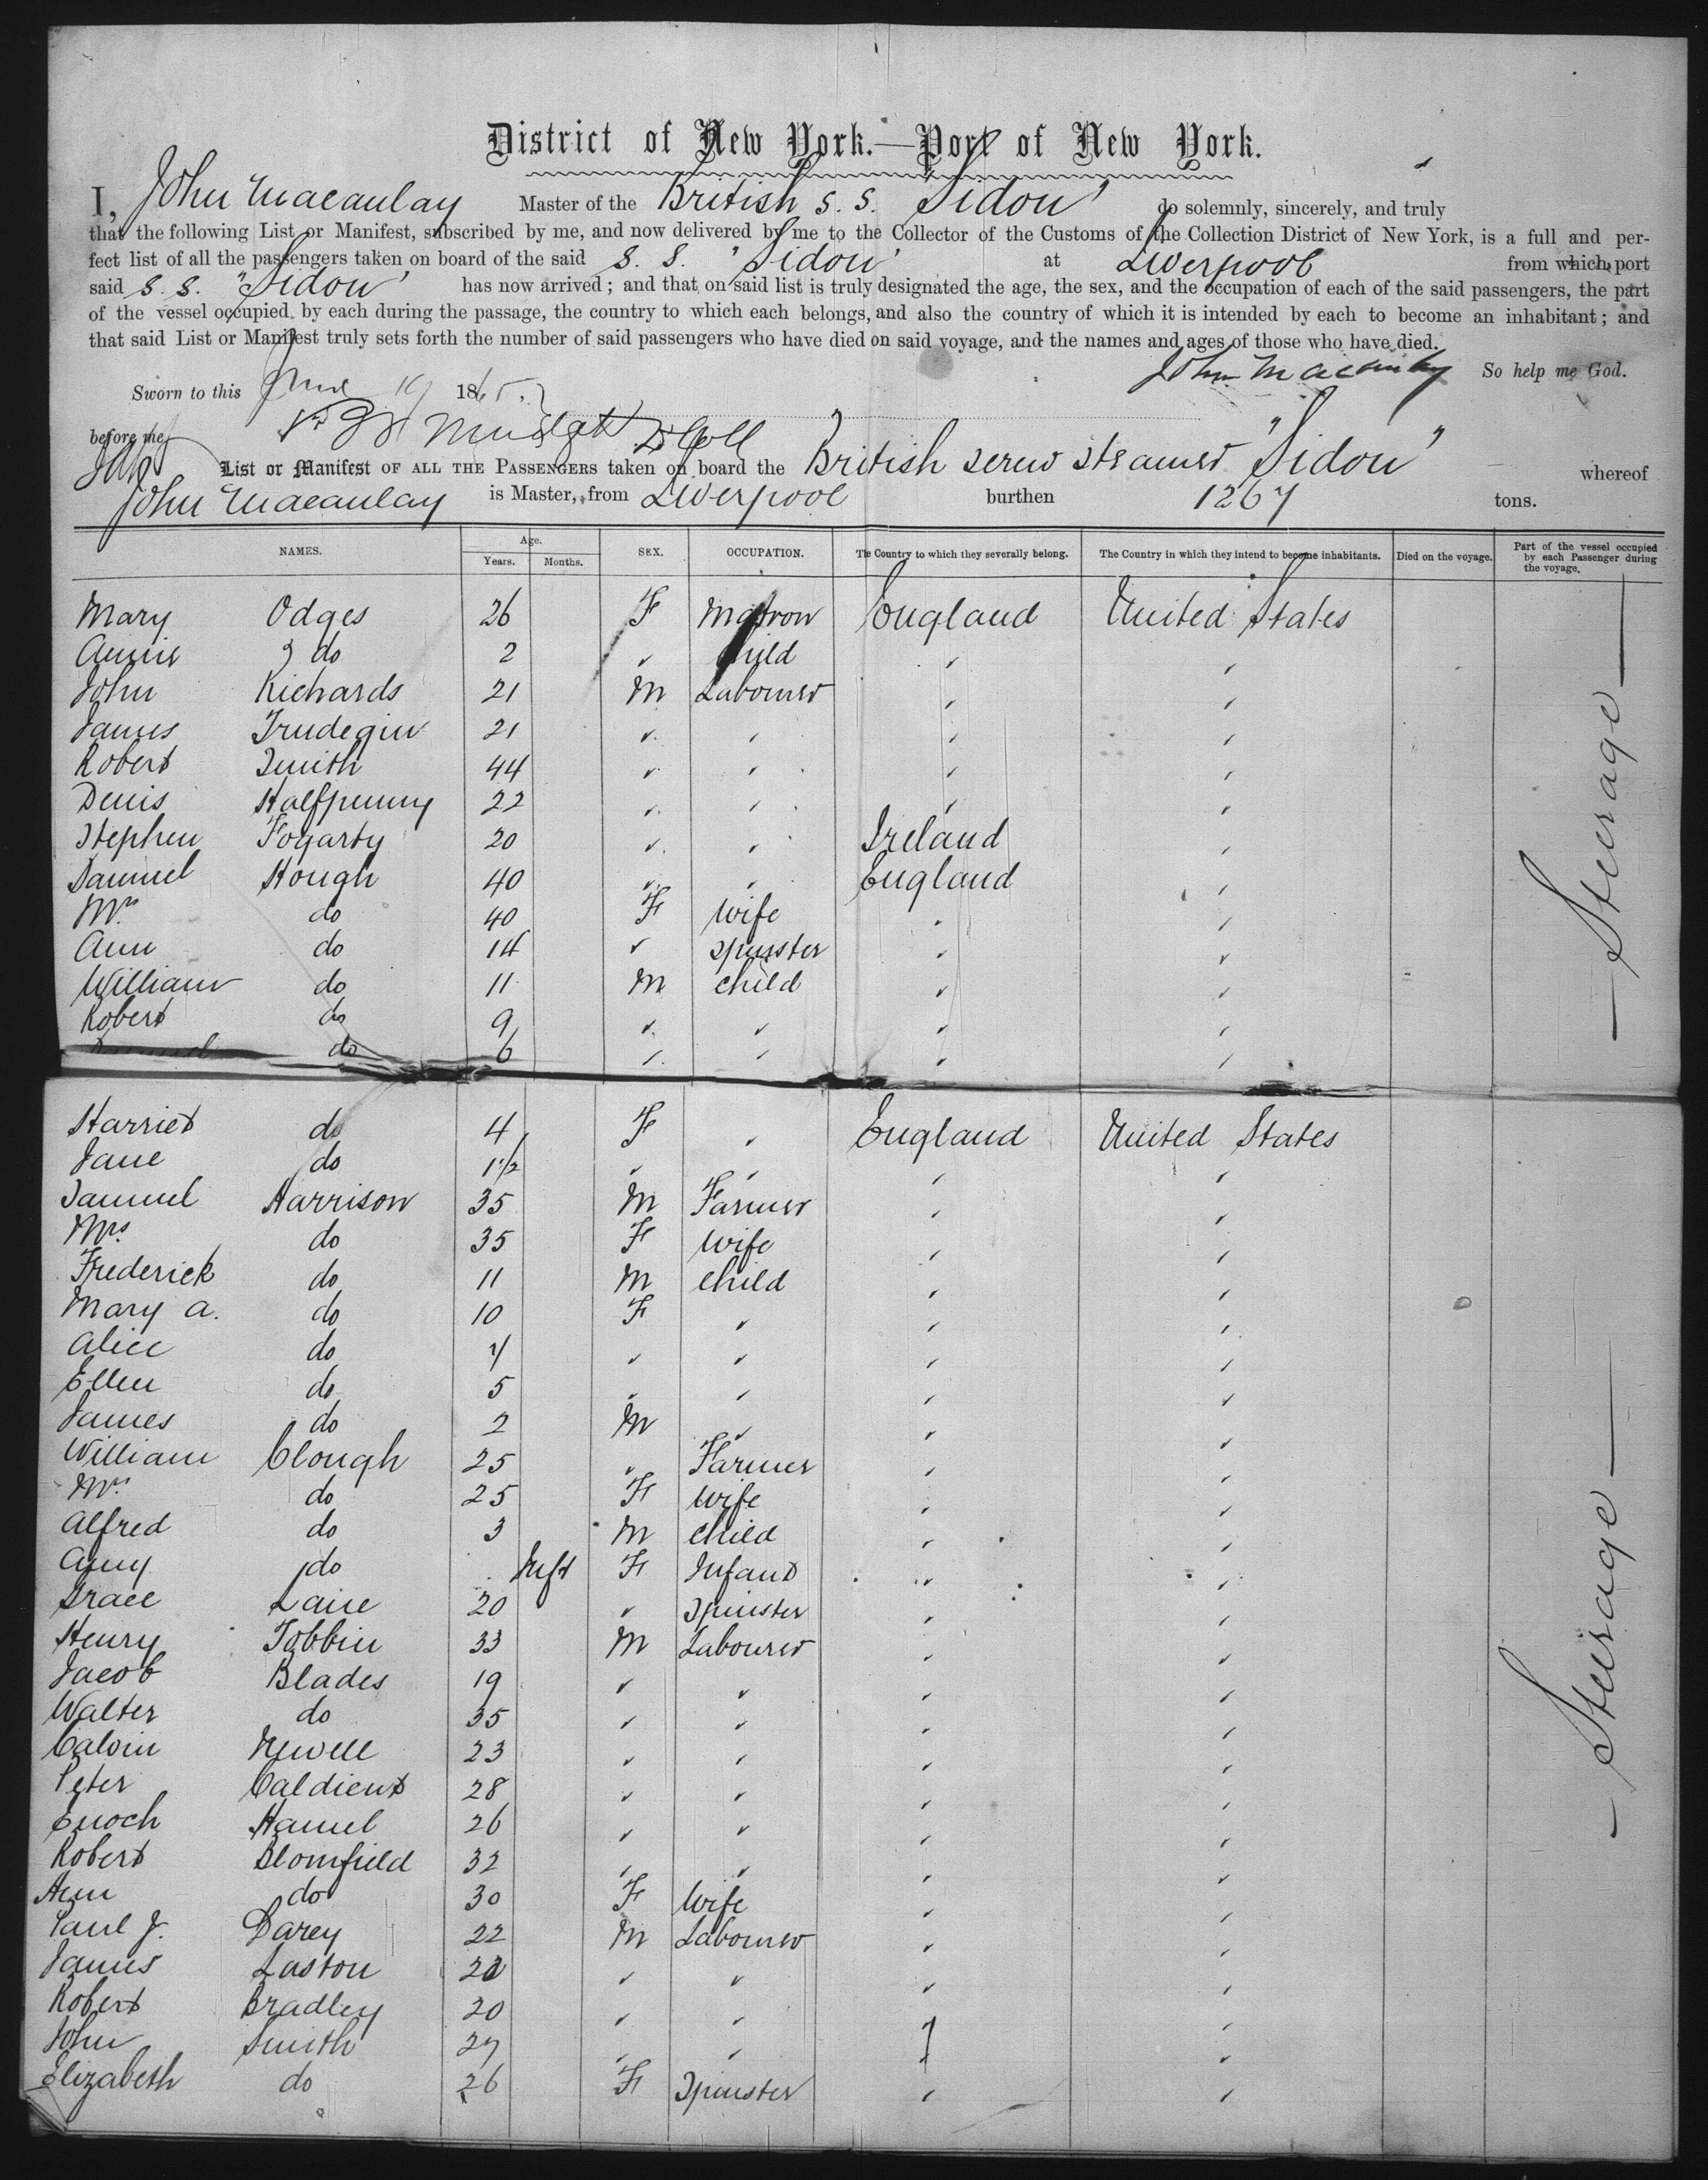 District of New York.—Port of New York.
I, John Macaulay Master of the British S. S. "Sidon" do solemnly, sincerely, and truly
that the following List or Manifest, subscribed by me, and now delivered by me to the Collector of the Customs of the Collection District of New York, is a full and per-
fect list of all the passengers taken on board of the said S. S. "Sidon" at Liverpool from which port
said S. S. "Sidon" has now arrived; and that on said list is truly designated the age, the sex, and the occupation of each of the said passengers, the part
of the vessel occupied by each during the passage, the country to which each belongs, and also the country of which it is intended by each to become an inhabitant; and
that said List or Manifest truly sets forth the number of said passengers who have died on said voyage, and the names and ages of those who have died.
John Macaulay So help me God.
Sworn to this June 19 1865.
before me
List or Manifest OF ALL THE PASSENGERS taken on board the British screw steamer "Sidon" whereof
John Macaulay is Master, from Liverpool burthen 1267 tons.
NAMES. Age. Years. Months. SEX. OCCUPATION. The Country to which they severally belong. The Country in which they intend to become inhabitants. Died on the voyage. Part of the vessel occupied by each Passenger during the voyage.
Mary Odges 26 F Matron England United States
Annie do 2 " Child " "
John Richards 21 M Labourer " "
James Trudegin 21 " " " "
Robert Smith 44 " " " "
Denis Halfpenny 22 " " " "
Stephen Fogarty 20 " " Ireland "
Samuel Hough 40 " " England "
Mrs do 40 F Wife " "
Ann do 14 " Spinster " "
William do 11 M Child " "
Robert do 9 " " " "
do 6 " " " "
— Steerage —
Harriet do 4 F " England United States
Jane do 1½ " " " "
Samuel Harrison 35 M Farmer " "
Mrs do 35 F Wife " "
Frederick do 11 M Child " "
Mary A. do 10 F " " "
Alice do 7 " " " "
Ellen do 5 " " " "
James do 2 M " " "
William Clough 25 " Farmer " "
Mrs do 25 F Wife " "
Alfred do 3 M Child " "
Amy do Inft F Infant " "
Grace Laine 20 " Spinster " "
Henry Tobbin 33 M Labourer " "
Jacob Blades 19 " " " "
Walter do 35 " " " "
Calvin Newell 23 " " " "
Peter Caldient 28 " " " "
Enoch Hamel 26 " " " "
Robert Blomfield 32 " " " "
Ann do 30 F Wife " "
Paul J. Darey 22 M Labourer " "
James Laston 22 " " " "
Robert Bradley 20 " " " "
John Smith 27 " " " "
Elizabeth do 26 F Spinster " "
— Steerage —